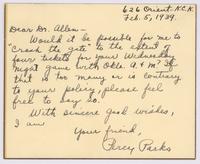 626 Orient. K.C.K.
Feb. 5, 1939.
Dear Dr. Allen—
Would it be possible for me to
"crash the gate" to the extent of
four tickets for your Wednesday
night game with Okla. A & M? If
that is too many or is contrary
to your policy, please feel
free to say so.
With sincere good wishes,
I am
Your friend,
Percy Parks